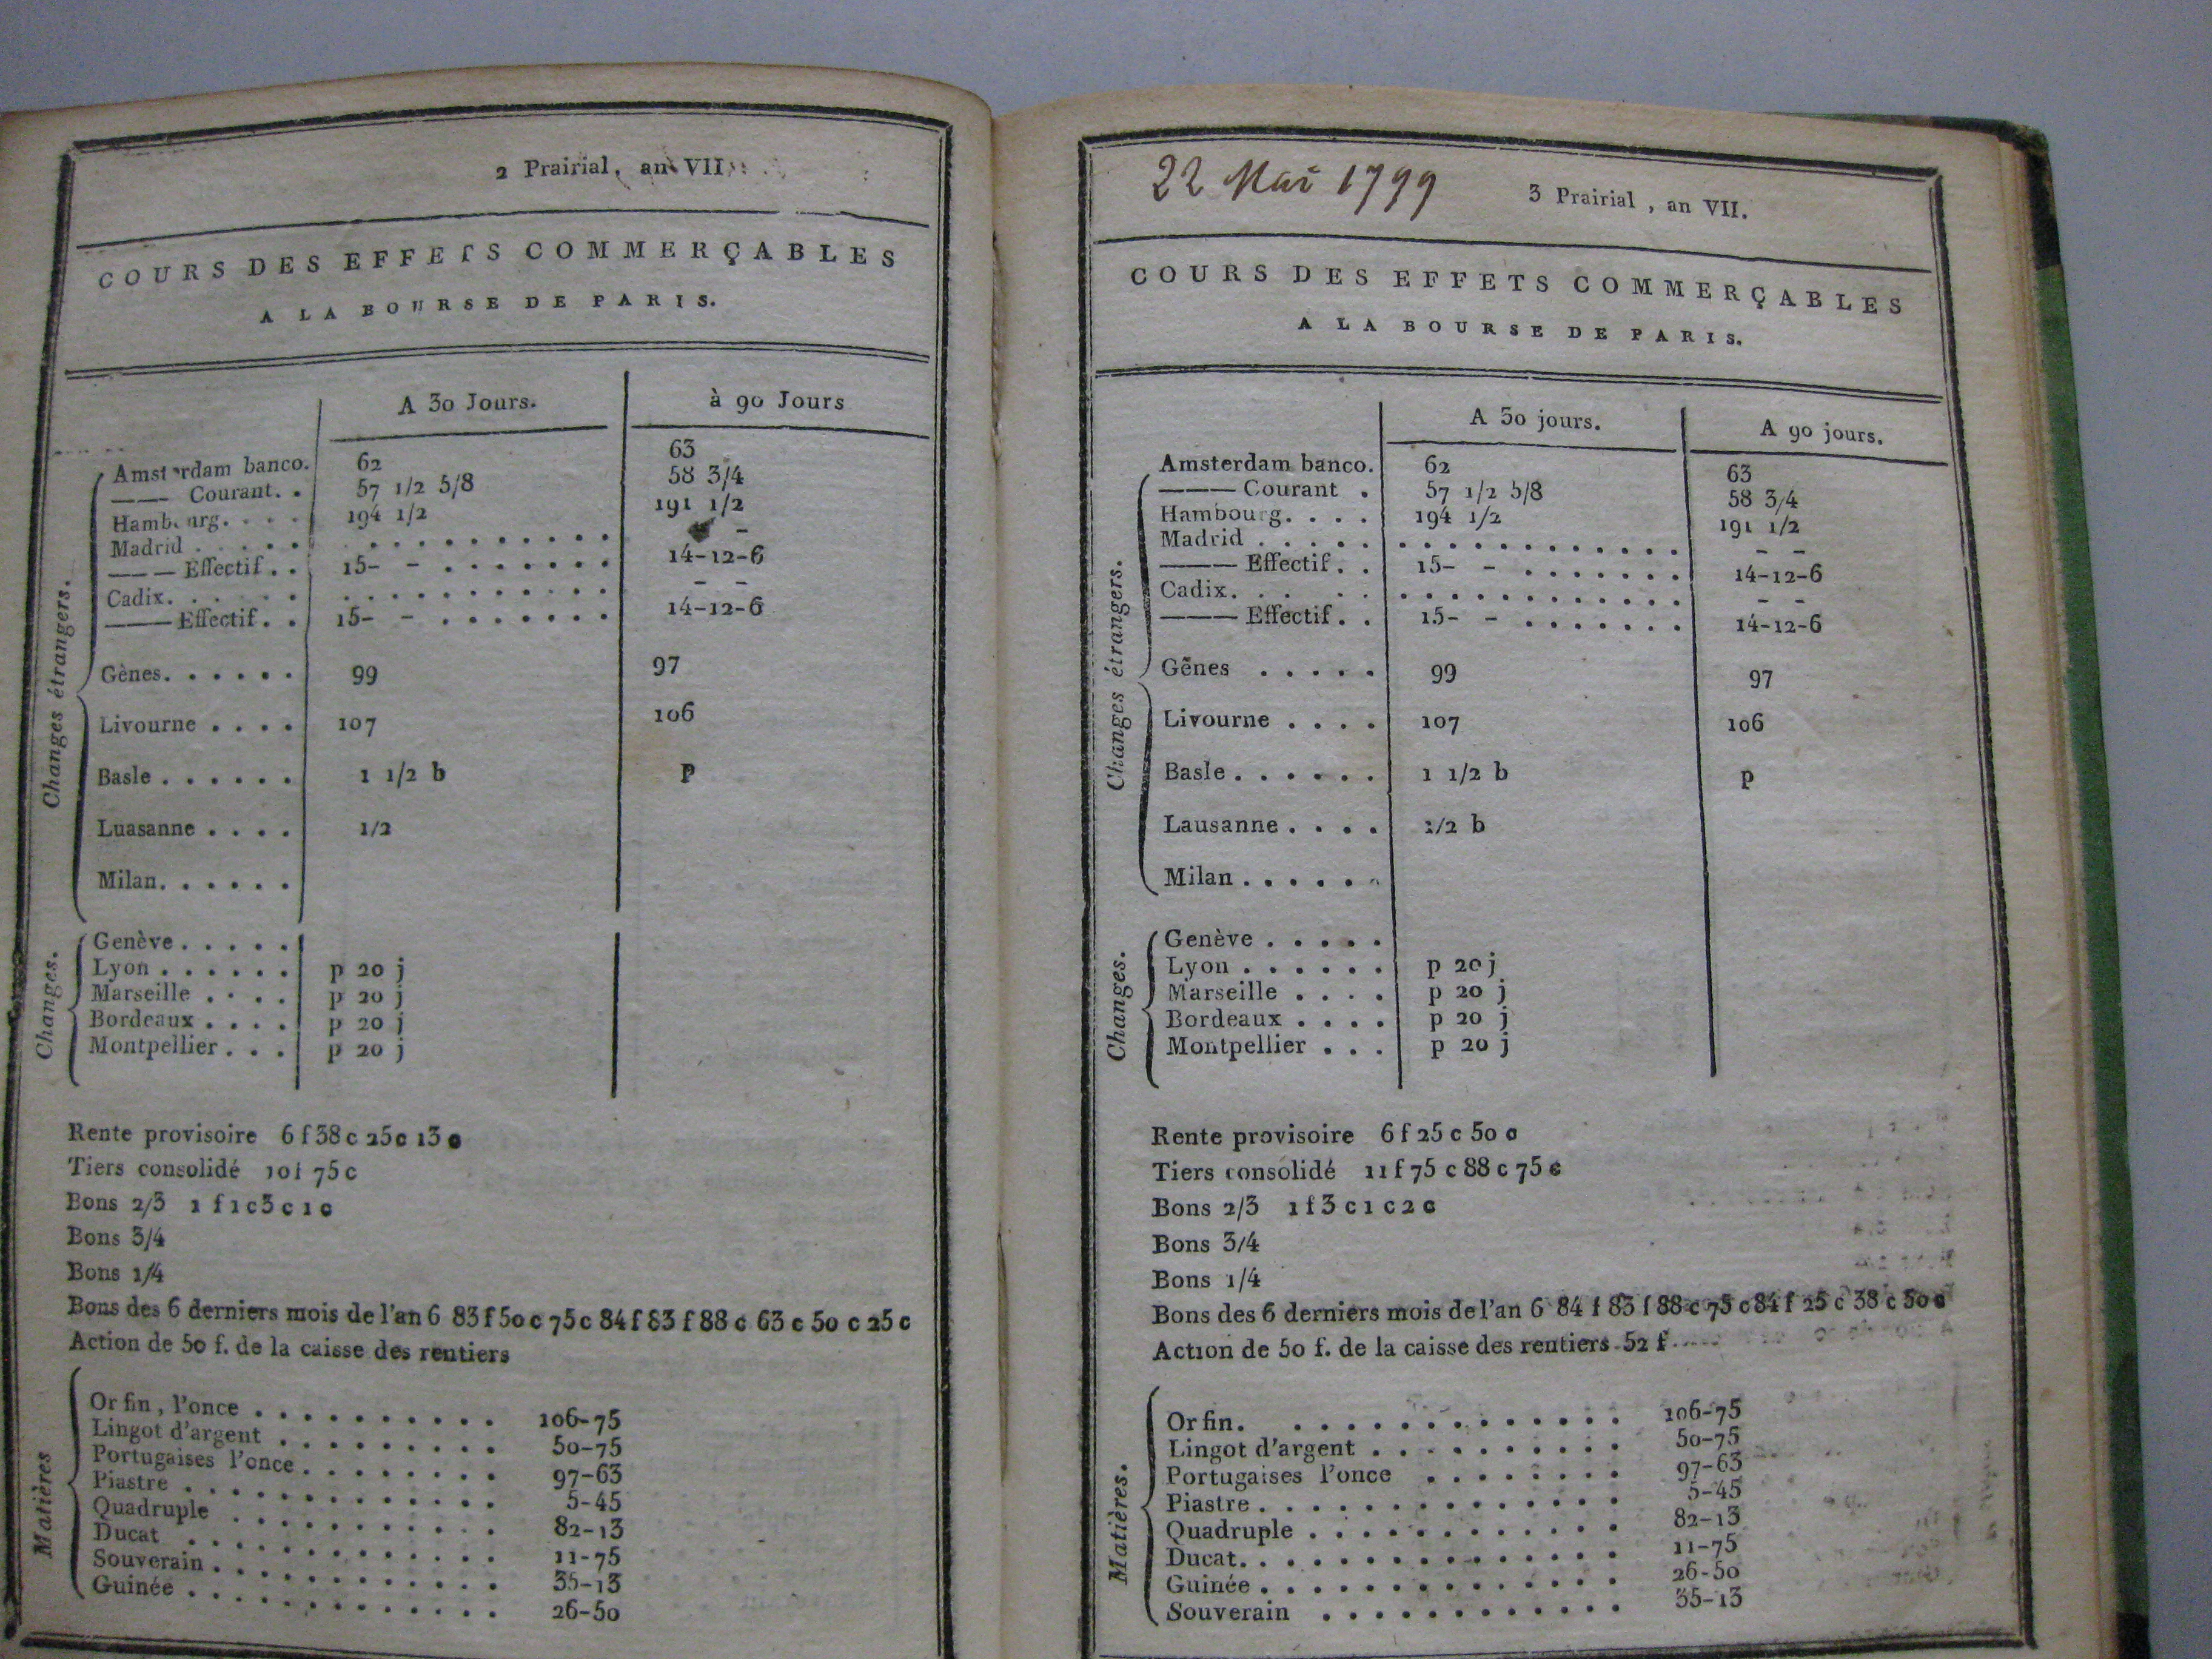 2 Prairial, an VII
COURS DES EFFETS COMMERÇABLES
A LA BOURSE DE PARIS.
A 30 Jours. à 90 Jours
Changes étrangers.
Amsterdam banco. 62 63
——— Courant. . 57 1/2 5/8 58 3/4
Hambourg. . . . 194 1/2 191 1/2
Madrid . . . . . . . . . . . . . . . -
——— Effectif. . 15- - . . . . . . . 14-12-6
Cadix. . . . . . . . . . . . . . . . - -
——— Effectif. . 15- - . . . . . . . 14-12-6
Gènes. . . . . . 99 97
Livourne . . . . 107 106
Basle . . . . . . 1 1/2 b P
Luasanne . . . . 1/2
Milan. . . . . .
Changes.
Genève . . . . .
Lyon . . . . . . p 20 j
Marseille . . . . p 20 j
Bordeaux . . . . p 20 j
Montpellier . . . p 20 j
Rente provisoire 6 f 38 c 25 c 13 c
Tiers consolidé 10 f 75 c
Bons 2/3 1 f 1 c 3 c 1 c
Bons 3/4
Bons 1/4
Bons des 6 derniers mois de l'an 6 83 f 50 c 75 c 84 f 83 f 88 c 63 c 50 c 25 c
Action de 50 f. de la caisse des rentiers
Matières
Or fin, l'once . . . . . . . . . . 106-75
Lingot d'argent . . . . . . . . . 50-75
Portugaises l'once . . . . . . . . 97-63
Piastre . . . . . . . . . . . . . 5-45
Quadruple . . . . . . . . . . . 82-13
Ducat . . . . . . . . . . . . . 11-75
Souverain . . . . . . . . . . . . 35-13
Guinée . . . . . . . . . . . . . 26-50
22 Mai 1799 3 Prairial, an VII.
COURS DES EFFETS COMMERÇABLES
A LA BOURSE DE PARIS.
A 30 jours. A 90 jours.
Changes étrangers.
Amsterdam banco. 62 63
——— Courant . 57 1/2 5/8 58 3/4
Hambourg. . . . 194 1/2 191 1/2
Madrid . . . . . . . . . . . . . . . . - -
——— Effectif. . 15- - . . . . . . . 14-12-6
Cadix. . . . . . . . . . . . . . . . - -
——— Effectif. . 15- - . . . . . . . 14-12-6
Gênes . . . . . 99 97
Livourne . . . . 107 106
Basle . . . . . . 1 1/2 b p
Lausanne . . . . 1/2 b
Milan . . . . . .
Changes.
Genève . . . . .
Lyon . . . . . . p 20 j
Marseille . . . . p 20 j
Bordeaux . . . . p 20 j
Montpellier . . . p 20 j
Rente provisoire 6 f 25 c 50 c
Tiers consolidé 11 f 75 c 88 c 75 c
Bons 2/3 1 f 3 c 1 c 2 c
Bons 3/4
Bons 1/4
Bons des 6 derniers mois de l'an 6 84 f 83 f 88 c 75 c 84 f 25 c 38 c 50 c
Action de 50 f. de la caisse des rentiers 52 f
Matières.
Or fin. . . . . . . . . . . . . . 106-75
Lingot d'argent . . . . . . . . . . 50-75
Portugaises l'once . . . . . . . . 97-63
Piastre . . . . . . . . . . . . . . 5-45
Quadruple . . . . . . . . . . . . 82-13
Ducat. . . . . . . . . . . . . . . 11-75
Guinée . . . . . . . . . . . . . . 26-50
Souverain . . . . . . . . . . . . 35-13